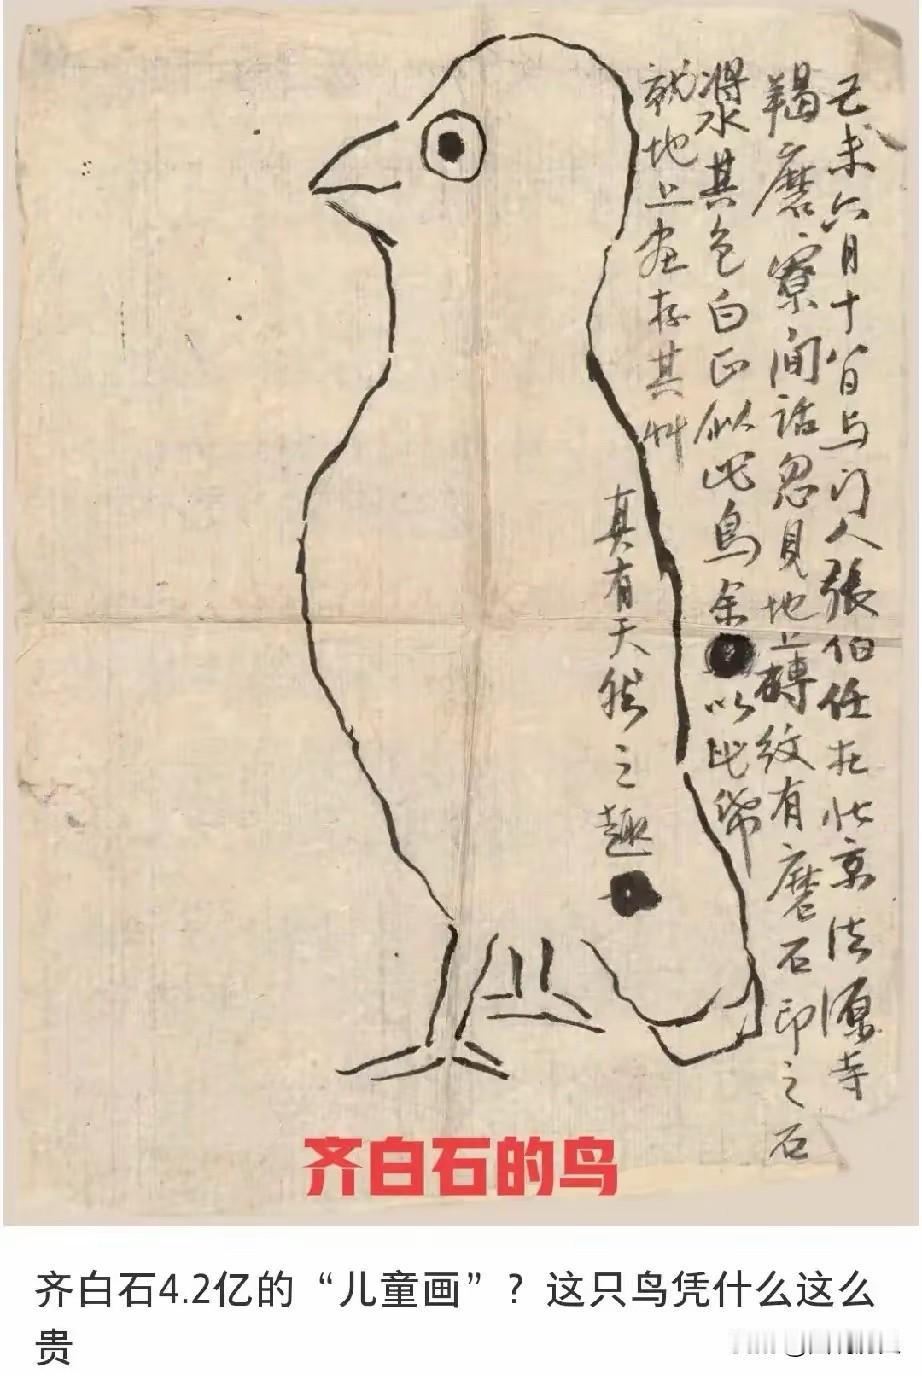 己未六月十八日与门人張伯任在北京法源寺
羯磨寮间話忽見地上磚紋有磨石印之石
漿水其色白正似此鳥余以此纸
就地上画存其艸
真有天然之趣
齐白石的鸟
齐白石4.2亿的“儿童画”？这只鸟凭什么这么
贵